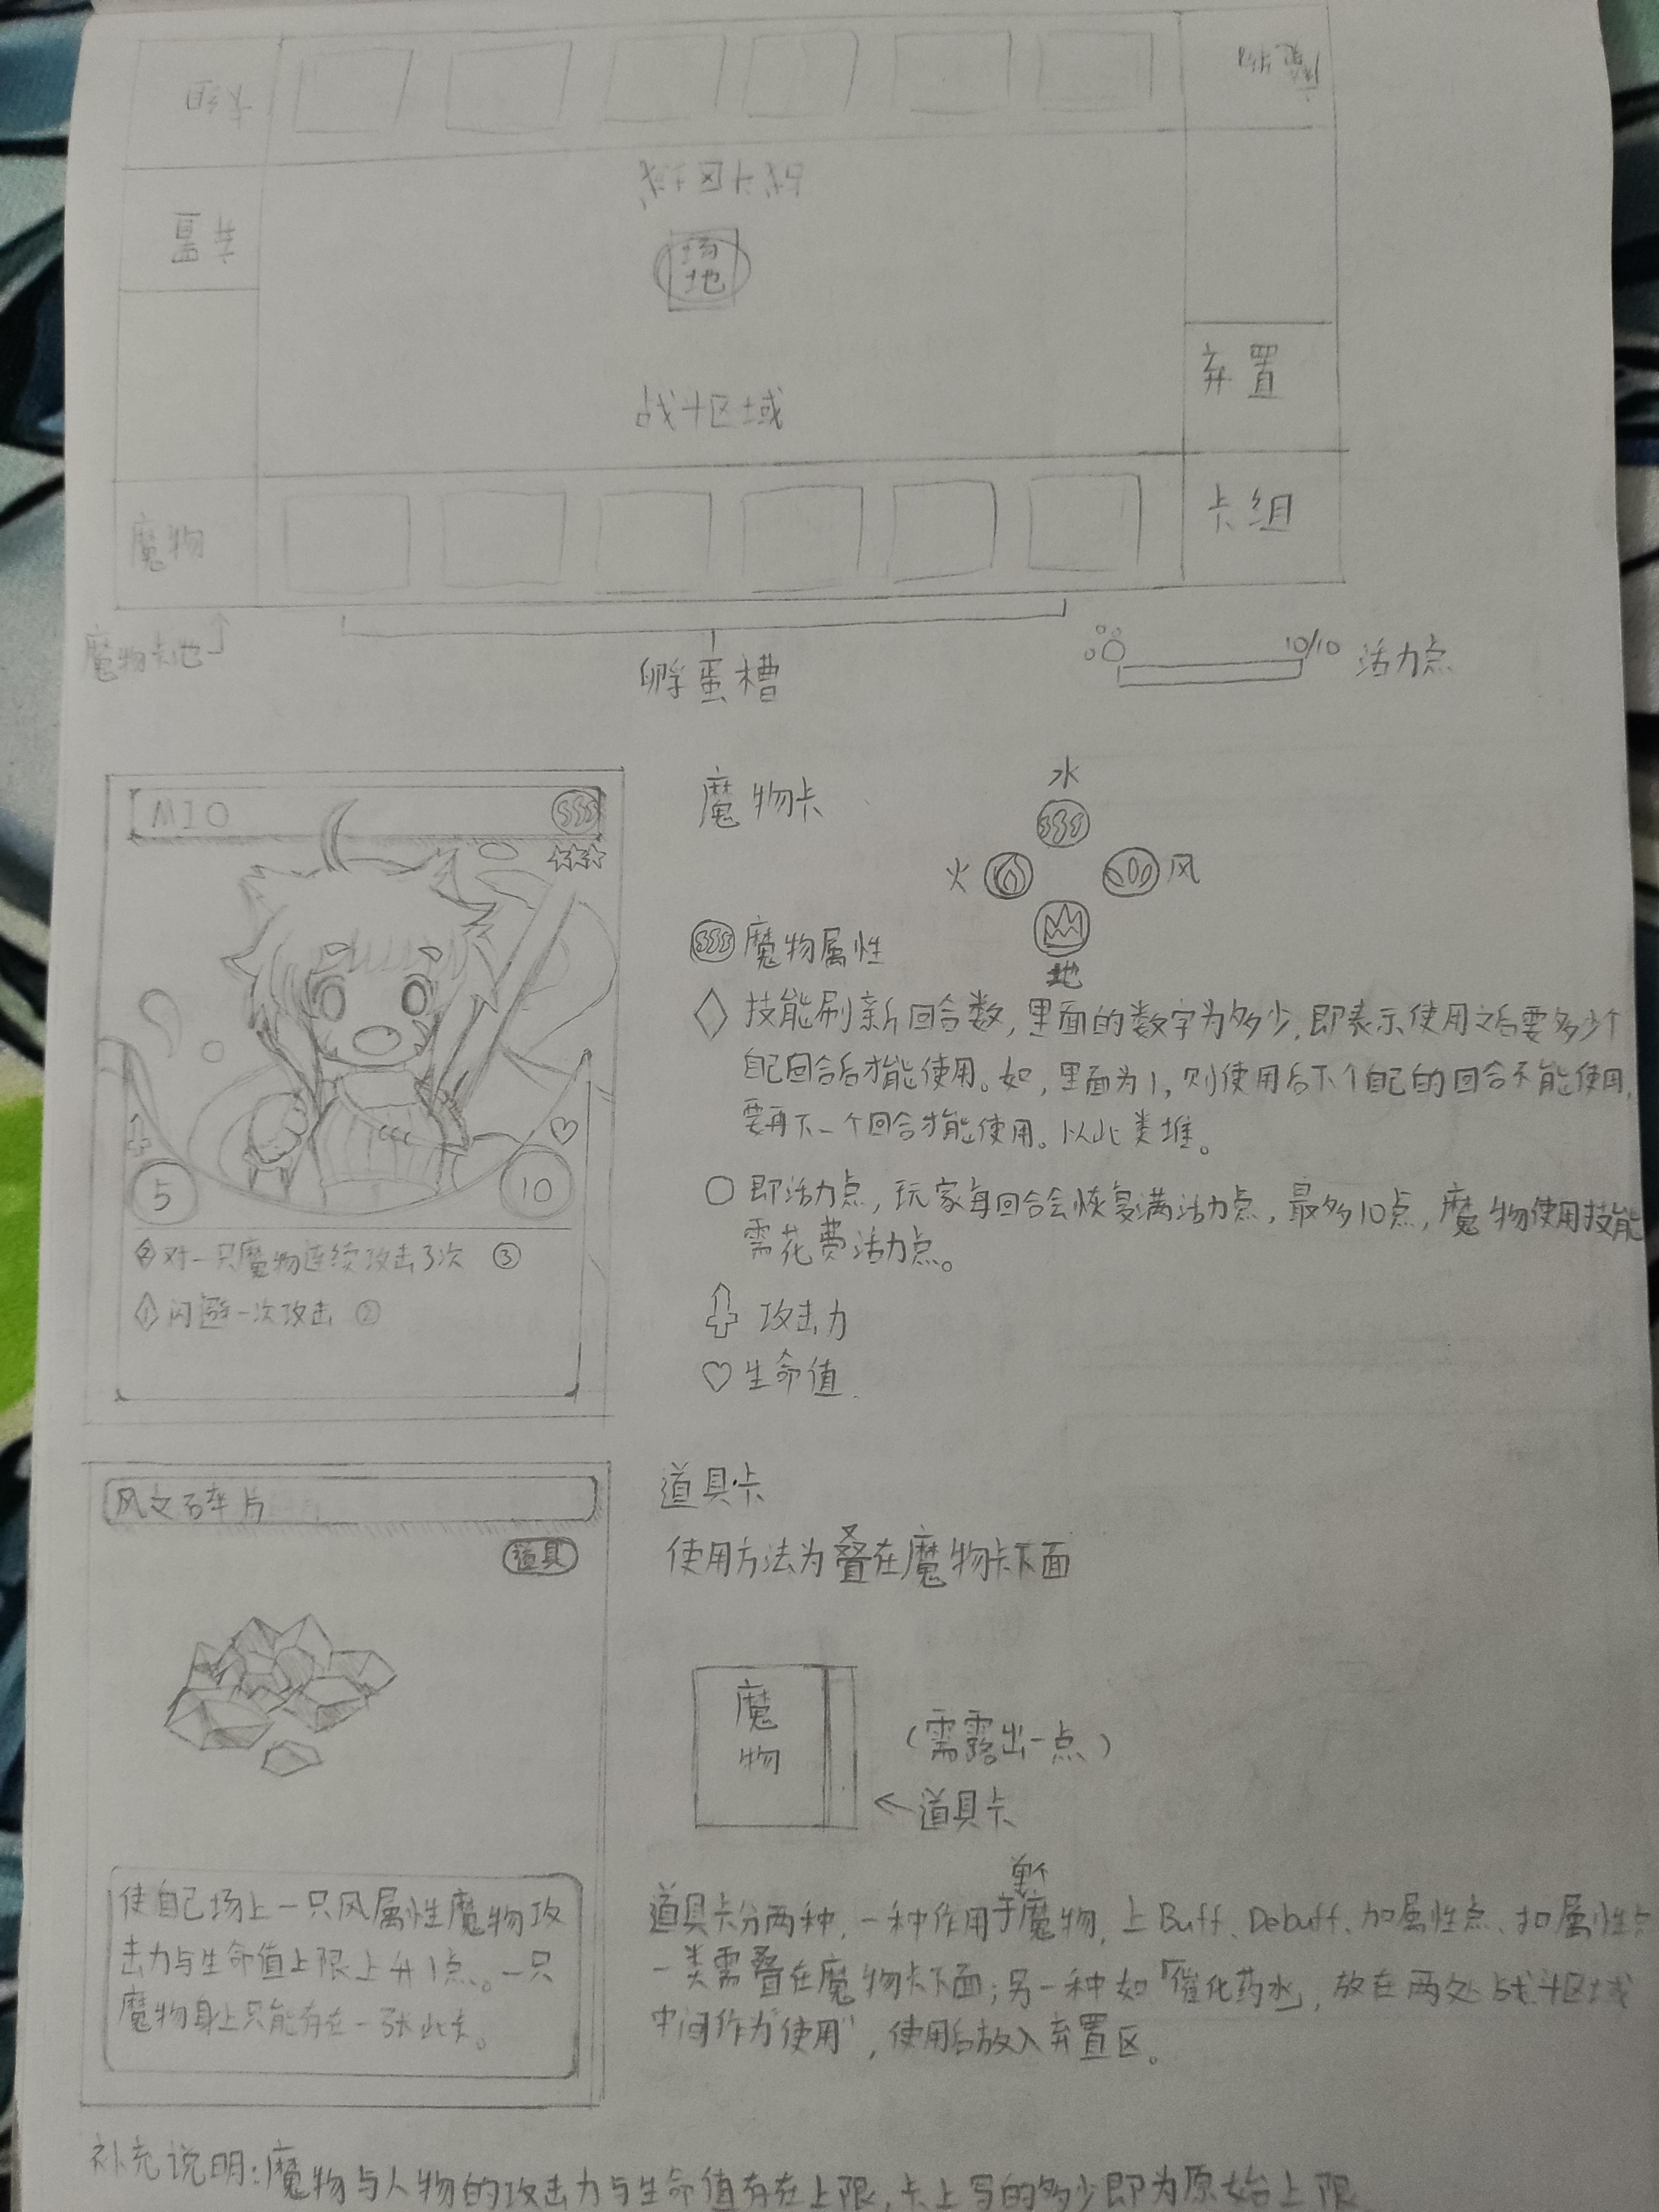 卡组
魔物
弃置
战斗区域
场
地
弃置
战斗区域
魔物
卡组
魔物卡池
孵蛋槽
10/10 活力点
MIO
5
10
2 对一只魔物连续攻击3次 ③
1 闪避一次攻击 ②
魔物卡
水
火
风
地
魔物属性
技能刷新回合数,里面的数字为多少,即表示使用之后要多少个
自己回合后才能使用。如,里面为1,则使用后下个自己的回合不能使用,
要再下一个回合才能使用。以此类堆。
即活力点,玩家每回合会恢复满活力点,最多10点,魔物使用技能
需花费活力点。
攻击力
生命值
风之碎片
道具
使自己场上一只风属性魔物攻
击力与生命值上限上升1点。一只
魔物身上只能存在一张此卡。
道具卡
使用方法为叠在魔物卡下面
魔
物
(需露出一点)
←道具卡
单个
道具卡分两种,一种作用于魔物,上Buff、Debuff、加属性点、扣属性点
一类需叠在魔物卡下面;另一种如「催化药水」,放在两处战斗区域
中间作为“使用”,使用后放入弃置区。
补充说明:魔物与人物的攻击力与生命值存在上限,卡上写的多少即为原始上限